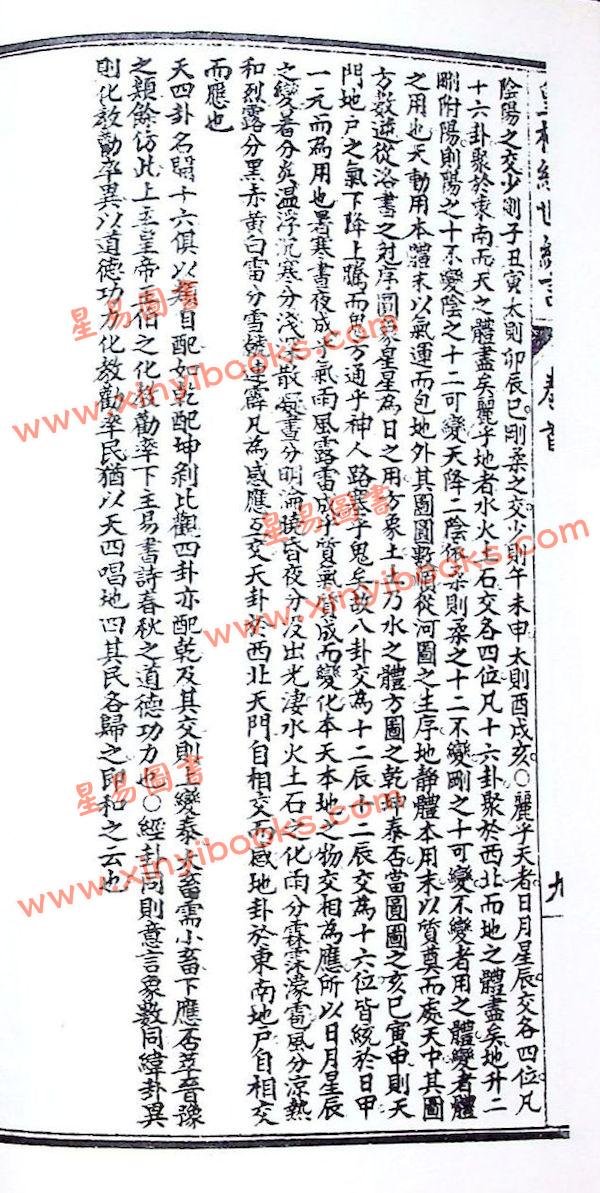 皇極經世緒言 卷首 九
陰陽之交少則子丑寅太則卯辰巳剛柔之交少則午未申太則酉戌亥○麗乎天者日月星辰交各四位凡
十六卦聚於東南而天之體盡矣麗乎地者水火土石交各四位凡十六卦聚於西北而地之體盡矣地升二
剛附陽則陽之十不變陰之十二可變天降二陰依柔則柔之十二不變剛之十可變不變者用之體變者體
之用也天動用本體末以氣運而包地外其圖圓暫同從河圖之主序地靜體本用末以質奠而處天中其圖
方數逆從洛書之尅序圓象星星為日之用方象土土乃水之體方圖之乾坤泰否當圓圖之亥巳寅申則天
門地戶之氣下降上騰而四方通乎神人路塞乎鬼矣故八卦交為十二辰十二辰交為十六位皆統於日甲
一元而為用也暑寒晝夜成乎氣雨風露雷成乎質氣質成而變化本天本地之物交相為應所以日月星辰
之變暑分炎溫浮沉寒分淺深散凝晝分明淪曉昏夜分沒出光淒水火土石之化雨分霖霂濛雹風分涼熱
和烈露分黑赤黃白雷分雪轟連霹凡為感應互交天卦於西北天門自相交而感地卦於東南地戶自相交
而應也
天四卦各開十六俱以類自配如乾配坤剝比觀四卦亦配乾及其交則上變泰大畜需小畜下應否萃晉豫
之類餘仿此上主皇帝王伯之化教勸率下主易書詩春秋之道德功力也○經卦同則意言象數同緯卦異
則化教勸率異以道德功力化教勸率民猶以天四唱地四其民各歸之即和之云也
星易圖書
www.xinyibooks.com
星易圖書
www.xinyibooks.com
星易圖書
www.xinyibooks.com